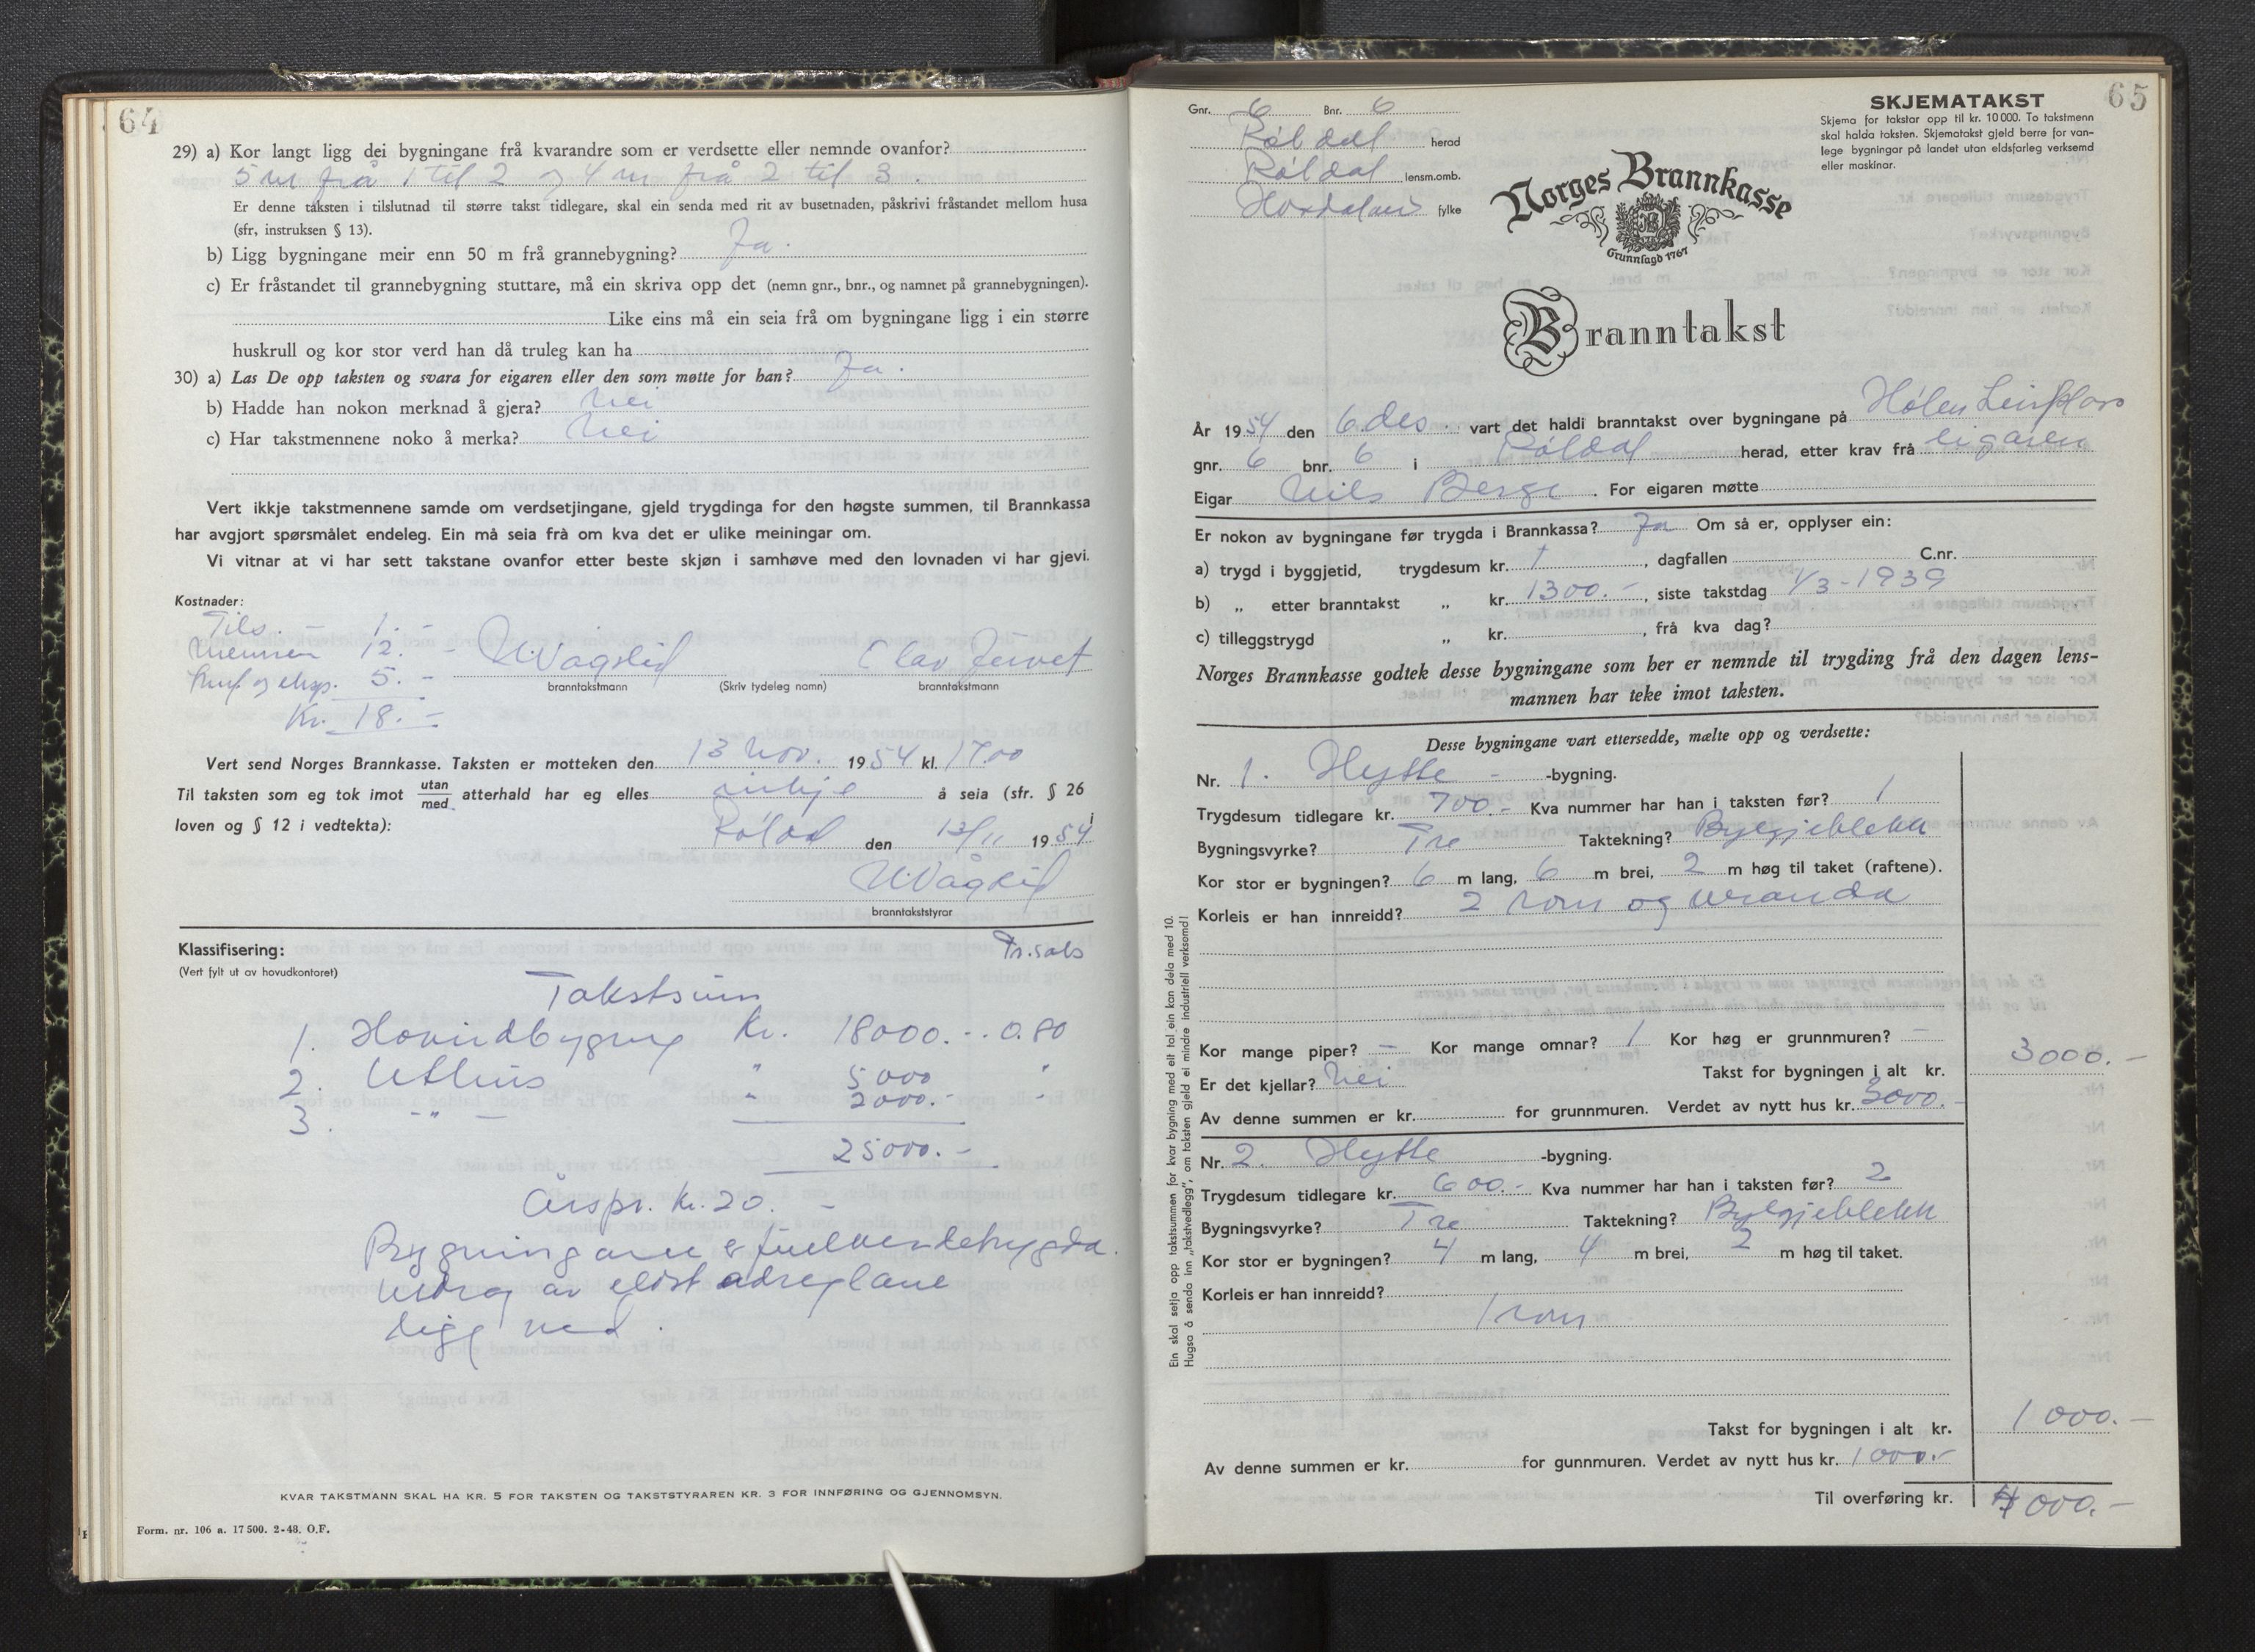 64
29) a) Kor langt ligg dei bygningane frå kvarandre som er verdsette eller nemnde ovanfor?
5 m frå 1 til 2 og 4 m frå 2 til 3.
Er denne taksten i tilslutnad til større takst tidlegare, skal ein senda med rit av busetnaden, påskrivi fråstandet mellom husa
(sfr, instruksen § 13).
b) Ligg bygningane meir enn 50 m frå grannebygning? Ja.
c) Er fråstandet til grannebygning stuttare, må ein skriva opp det (nemn gnr., bnr., og namnet på grannebygningen).
Like eins må ein seia frå om bygningane ligg i ein større
huskrull og kor stor verd han då truleg kan ha
30) a) Las De opp taksten og svara for eigaren eller den som møtte for han? Ja.
b) Hadde han nokon merknad å gjera? Nei
c) Har takstmennene noko å merka? Nei
Vert ikkje takstmennene samde om verdsetjingane, gjeld trygdinga for den høgste summen, til Brannkassa
har avgjort spørsmålet endeleg. Ein må seia frå om kva det er ulike meiningar om.
Vi vitnar at vi har sett takstane ovanfor etter beste skjøn i samhøve med den lovnaden vi har gjevi.
Kostnader:
Tils. - 1. -
Mennen 12. -
5. -
Kr. 18. -
branntakstmann (Skriv tydeleg namn) branntakstmann
Vert send Norges Brannkasse. Taksten er motteken den 13 nov. 1954 kl. 17.00
Til taksten som eg tok imot utan/med atterhald har eg elles inkje å seia (sfr. § 26 i
loven og § 12 i vedtekta):
Røldal den 13/11 1954
branntakststyrar
Klassifisering:
(Vert fylt ut av hovudkontoret)
Pr.sats
Takstsum
1. Hovudbygning Kr. 18000.- 0.80
2. Uthus " 5000 "
3. -"- " 2000.- "
25000.-
Årspr. kr. 20. -
Bygningane er fullverdetrygda.
Utdrag av
ligg ved.
KVAR TAKSTMANN SKAL HA KR. 5 FOR TAKSTEN OG TAKSTSTYRAREN KR. 3 FOR INNFØRING OG GJENNOMSYN.
Form. nr. 106 a. 17500. 2-48. O.F.
65
Gnr. 6 Bnr. 6
Røldal herad
Røldal lensm.omb.
Hordaland fylke
SKJEMATAKST
Skjema for takstar opp til kr. 10 000. To takstmenn
skal halda taksten. Skjematakst gjeld berre for van-
lege bygningar på landet utan eldsfarleg verksemd
eller maskinar.
Norges Brannkasse
Grunnlagd 1767
Branntakst
År 1954 den 6. des. vart det haldi branntakst over bygningane på Hølen
gnr. 6 bnr. 6 i Røldal herad, etter krav frå eigaren
Eigar Nils Berge. For eigaren møtte
Er nokon av bygningane før trygda i Brannkassa? Ja Om så er, opplyser ein:
a) trygd i byggjetid, trygdesum kr. , dagfallen C.nr.
b) „ etter branntakst „ kr. 1300.-, siste takstdag 1/3-1939
c) tilleggstrygd „ kr. , frå kva dag?
Norges Brannkasse godtek desse bygningane som her er nemnde til trygding frå den dagen lens-
mannen har teke imot taksten.
Desse bygningane vart ettersedde, mælte opp og verdsette:
Nr. 1. Hytte -bygning.
Trygdesum tidlegare kr. 700.- Kva nummer har han i taksten før? 1
Bygningsvyrke? Tre Taktekning? Bylgjeblekk
Kor stor er bygningen? 6 m lang, 6 m brei, 2 m høg til taket (raftene).
Korleis er han innreidd? 2 rom og veranda
Kor mange piper? - Kor mange omnar? 1 Kor høg er grunnmuren? -
Er det kjellar? Nei Takst for bygningen i alt kr. 3000.-
Av denne summen er kr. for grunnmuren. Verdet av nytt hus kr. 3000.-
Nr. 2. Hytte -bygning.
Trygdesum tidlegare kr. 600.- Kva nummer har han i taksten før? 2
Bygningsvyrke? Tre Taktekning? Bylgjeblekk
Kor stor er bygningen? 4 m lang, 4 m brei, 2 m høg til taket.
Korleis er han innreidd?
1 rom
Takst for bygningen i alt kr. 1000.-
Av denne summen er kr. for gunnmuren. Verdet av nytt hus kr. 1000.-
Til overføring kr. 4000.-
Ein skal setja opp takstsummen for kvar bygning med eit tal ein kan dela med 10.
Hugsa å senda inn „takstvedlegg", om taksten gjeld ei mindre industriell verksemd!